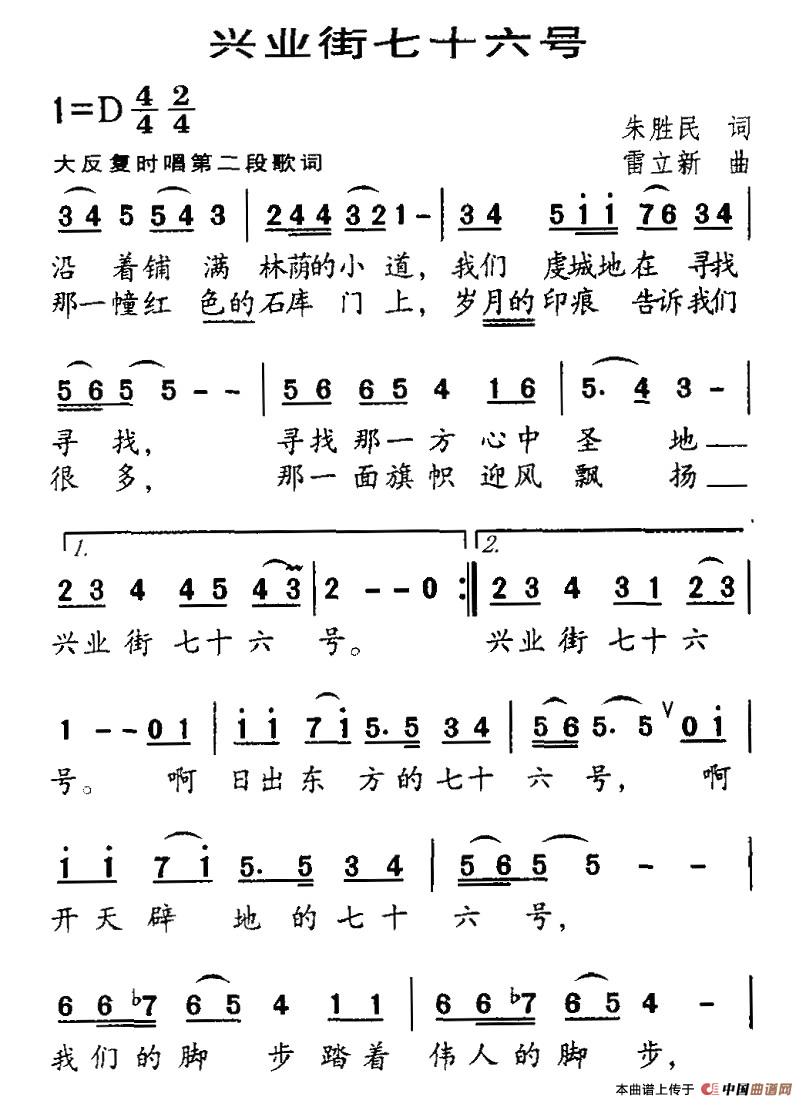 兴业街七十六号
1=D 4/4 2/4
朱胜民 词
大反复时唱第二段歌词
雷立新 曲
3 4 5 5 4 3 | 2 4 4 3 2 1 - | 3 4 5 i i 7 6 3 4 |
沿着铺满林荫的小道，我们虔城地在寻找
那一幢红色的石库门上，岁月的印痕告诉我们
5 6 5 5 - - | 5 6 6 5 4 4 1 6 | 5. 4 3 - |
寻找，寻找那一方心中圣地
很多，那一面旗帜迎风飘扬
1. 2.
2 3 4 4 5 4 3 | 2 - - 0 :| 2 3 4 3 1 2 3 |
兴业街七十六号。兴业街七十六
1 - - 0 1 | i i 7 i 5. 5 3 4 | 5 6 5. 5 V 0 i |
号。啊日出东方的七十六号，啊
i i 7 i 5. 5 3 4 | 5 6 5 5 - - |
开天辟地的七十六号，
6 6 ♭7 6 5 4 1 1 | 6 6 ♭7 6 5 4 - |
我们的脚步踏着伟人的脚步，
本曲谱上传于 中国曲谱网